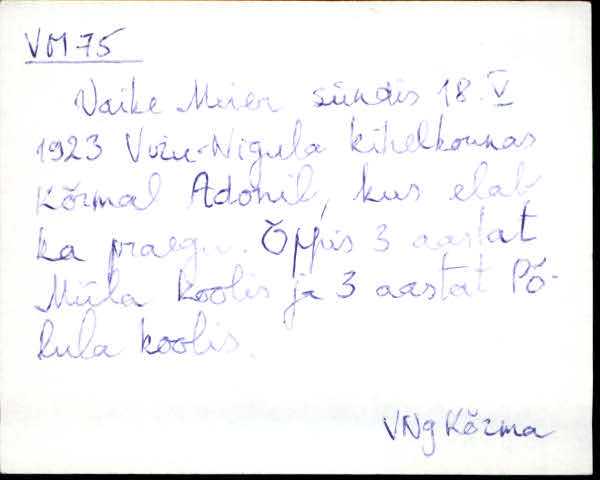 VM 75
Vaike Meier sündis 18. V
1923 Viru-Nigula kihelkonnas
Kõrmal Adonil, kus elab
ka praegu. Õppis 3 aastat
Müla koolis ja 3 aastat Põ-
lula koolis.
VNg Kõrma